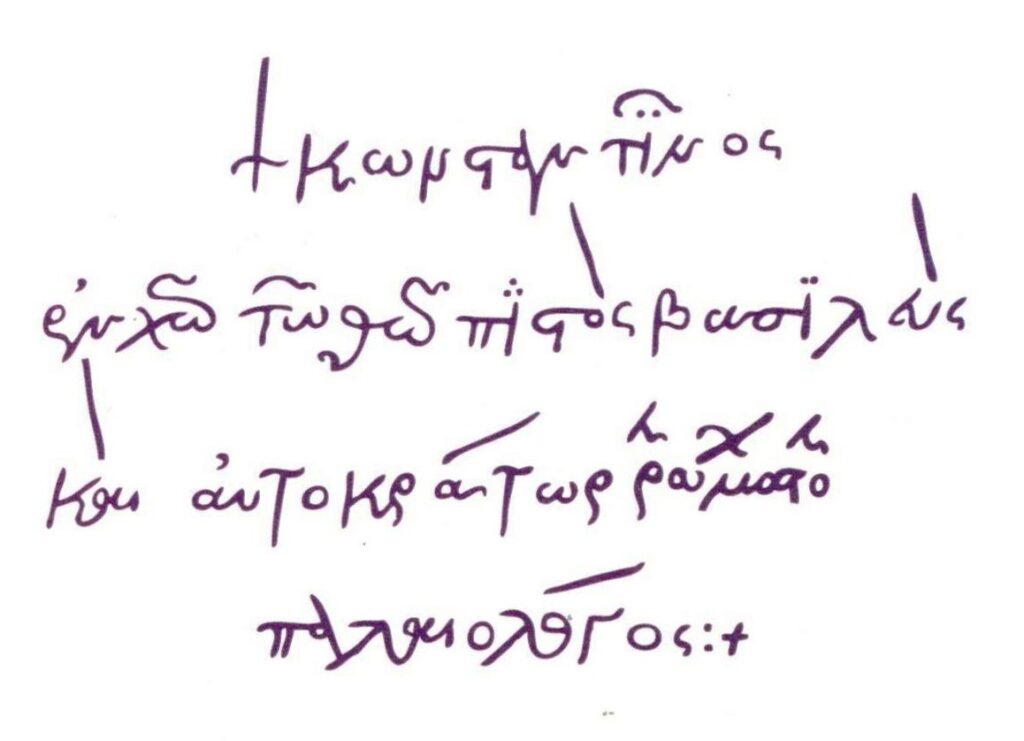 + κωνσταντῖνος
ἐν χῶ τῶ θῶ πϊστὸς βασϊλεὺς
καὶ ἀυτοκράτωρ ῥωμαίων ὁ
παλαιολόγος:+